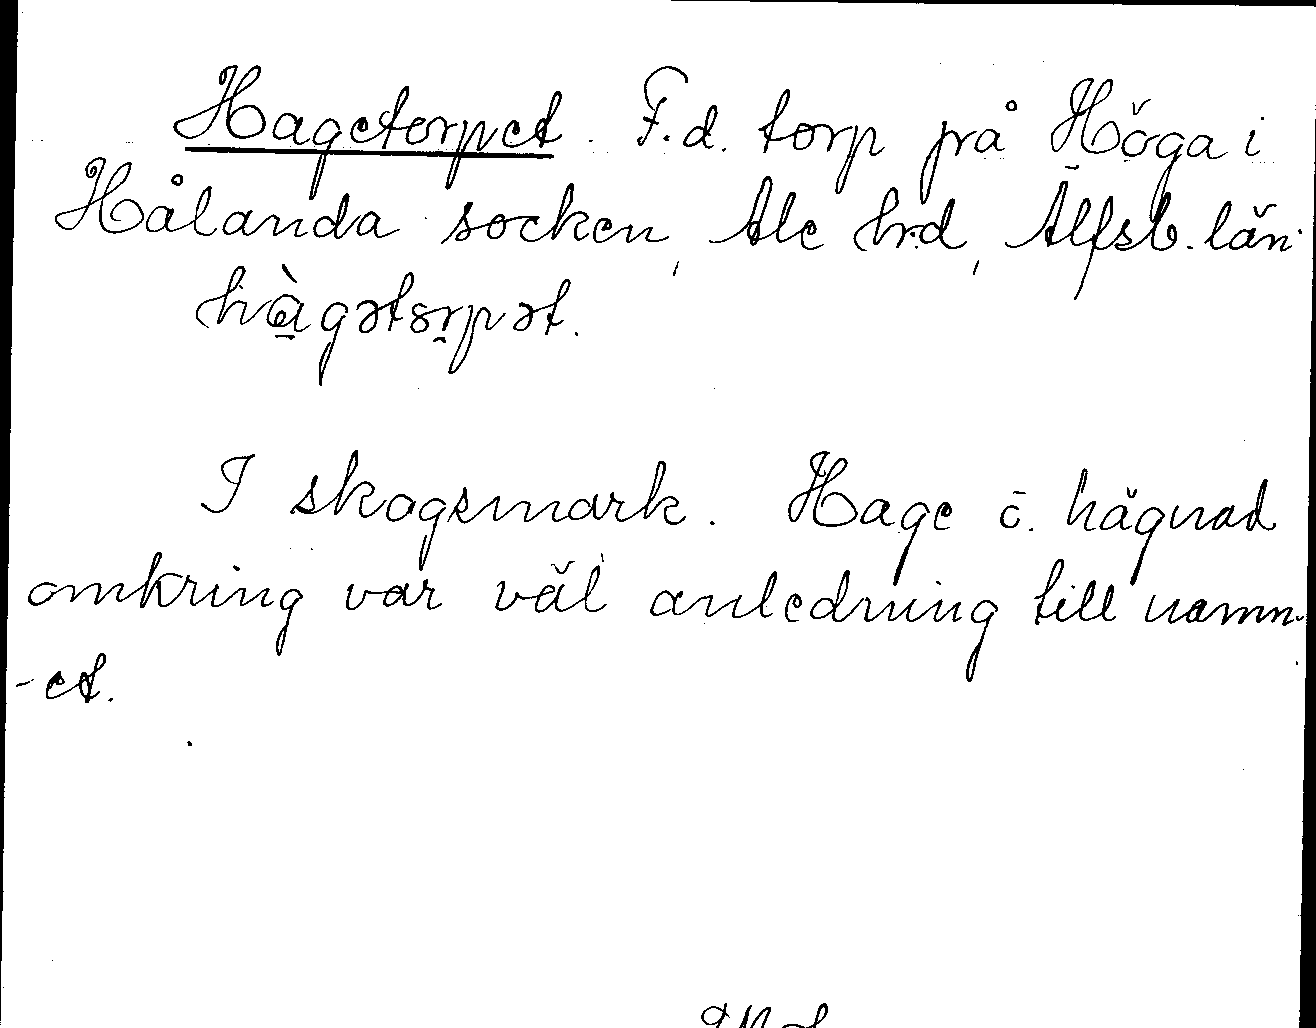 Hagetorpet. F.d. torp på Höga i
Hålanda socken, Ale hrd, Älfsb. län.
hàgətərpət.
I skogsmark. Hage o. hägnad
omkring var väl anledning till namn-
-et.